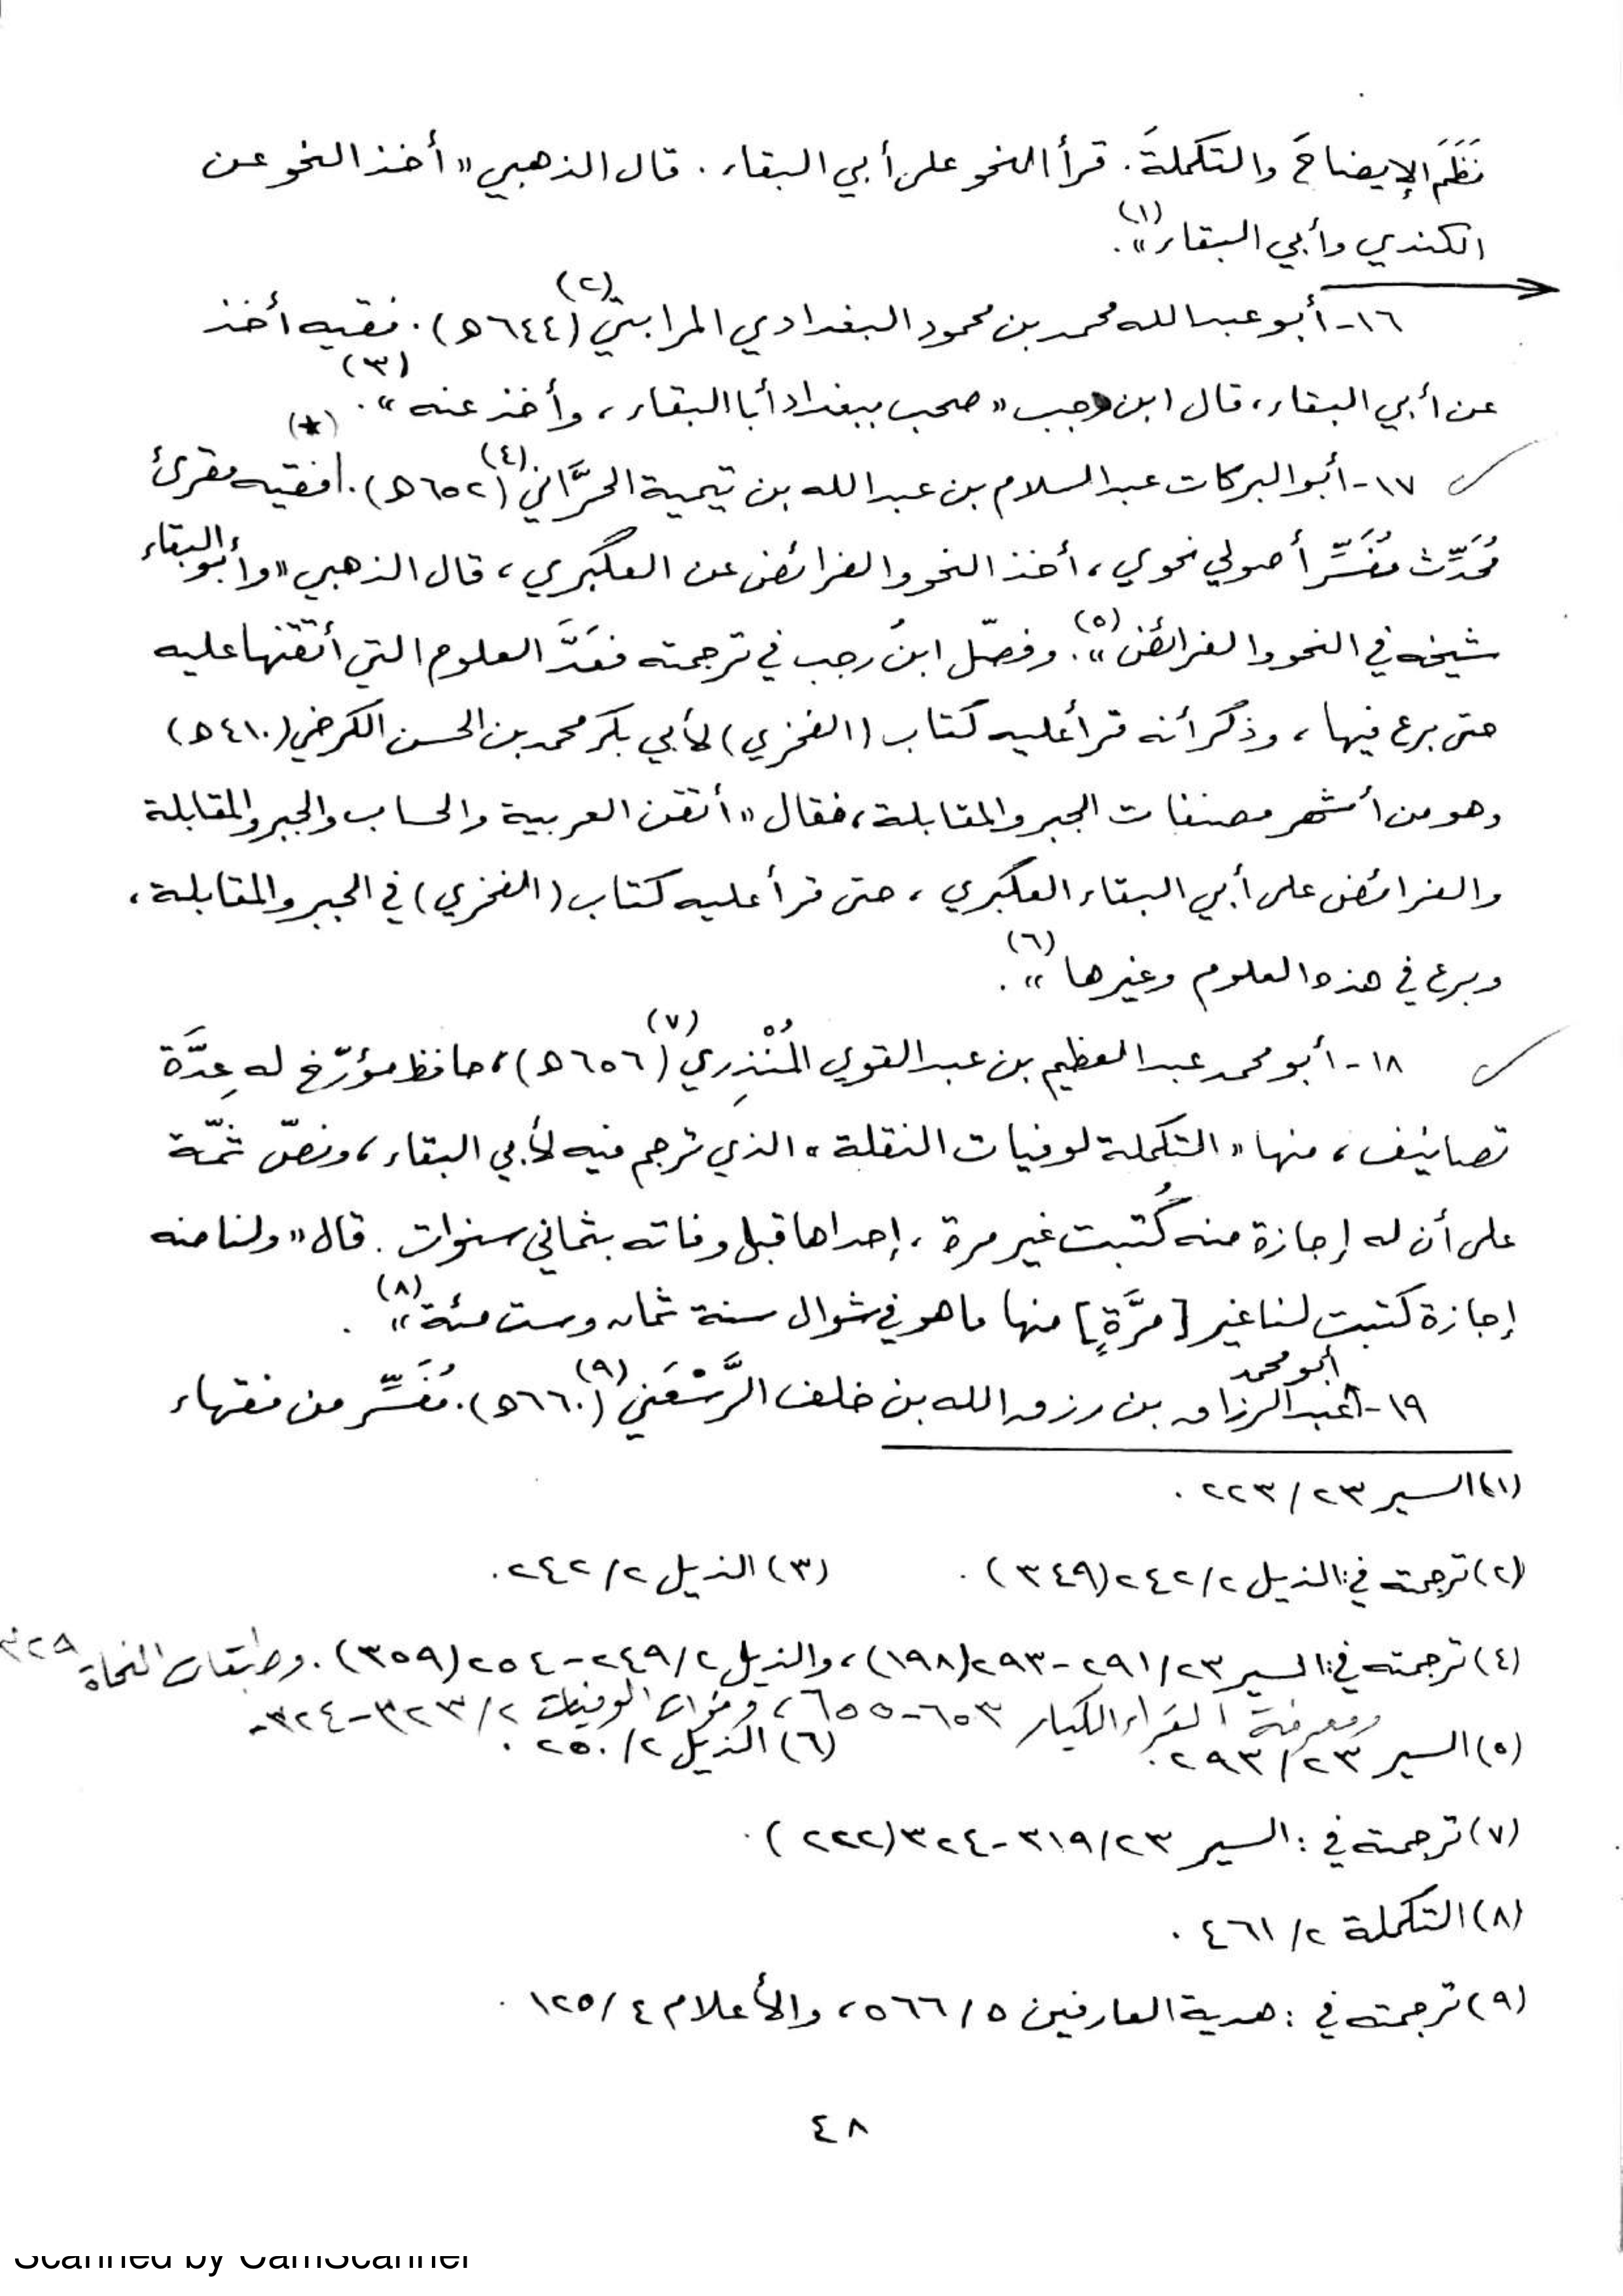 نَظَمَ الإيضاحَ والتكملةَ. قرأ النحو على أبي البقاء. قال الذهبي «أخذ النحو عن
الكندي وأبي البقاء»(١).
١٦- أبو عبد الله محمد بن محمود البغدادي المراتبي(٢) (٦٤٤ﻫ). فقيه أخذ
عن أبي البقاء، قال ابن رجب «صحب ببغداد أبا البقاء، وأخذ عنه»(٣).
(*)
١٧- أبو البركات عبد السلام بن عبد الله بن تيمية الحرَّاني(٤) (٦٥٢ﻫ). فقيه مقرئ
مُحَدِّث مُفَسِّر أصولي نحوي، أخذ النحو والفرائض عن العكبري، قال الذهبي «وأبو البقاء
شيخه في النحو والفرائض»(٥). وفصّل ابنُ رجب في ترجمته فعَدَّ العلوم التي أتقنها عليه
حتى برع فيها، وذكر أنه قرأ عليه كتاب (الفخري) لأبي بكر محمد بن الحسن الكرخي (٤١٠ﻫ)
وهو من أشهر مصنفات الجبر والمقابلة، فقال «أتقن العربية والحساب والجبر والمقابلة
والفرائض على أبي البقاء العكبري، حتى قرأ عليه كتاب (الفخري) في الجبر والمقابلة،
وبرع في هذه العلوم وغيرها»(٦).
١٨- أبو محمد عبد العظيم بن عبد القوي المُنْذِري(٧) (٦٥٦ﻫ)، حافظ مؤرّخ له عِدَّة
تصانيف، منها «التكملة لوفيات النقلة» الذي ترجم فيه لأبي البقاء، ونصّ ثمّة
على أن له إجازة منه كُتبت غير مرة، إحداها قبل وفاته بثماني سنوات. قال «ولنا منه
إجازة كتبت لنا غير [مرَّةٍ] منها ما هو في شوال سنة ثمان وست مئة»(٨).
١٩- أبو محمد عبد الرزاق بن رزق الله بن خلف الرَّسْعَني(٩) (٦٦٠ﻫ). مُفَسِّر من فقهاء
(١) السير ٢٣/ ٢٢٣.
(٢) ترجمته في: الذيل ٢/ ٢٤٢ (٣٤٩). (٣) الذيل ٢/ ٢٤٢.
(٤) ترجمته في: السير ٢٣/ ٢٩١-٢٩٣ (١٩٨)، والذيل ٢/ ٢٤٩-٢٥٤ (٣٥٩). وطبقات النحاة
ومعرفة القراء الكبار ٦٥٣-٦٥٥، وفوات الوفيات ٢/ ٣٢٣-٣٢٤.
(٥) السير ٢٣/ ٢٩٣. (٦) الذيل ٢/ ٢٥٠.
(٧) ترجمته في: السير ٢٣/ ٣١٩-٣٢٤ (٢٢٢).
(٨) التكملة ٢/ ٤٦١.
(٩) ترجمته في: هدية العارفين ٥/ ٥٦٦، والأعلام ٤/ ١٢٥.
٤٨
Scanned by CamScanner